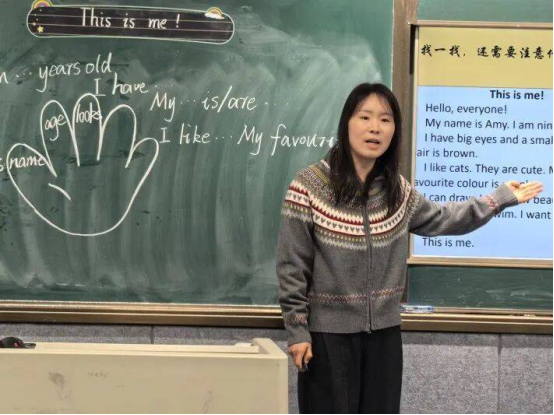 This is me!
years old
I have
My ... is/are ...
age
look
I like ... My favourite
name
找一找，还需要注意什
This is me!
Hello, everyone!
My name is Amy. I am nin
I have big eyes and a smal
air is brown.
I like cats. They are cute. M
avourite colour is
can draw beau
wim. I want
This is me.